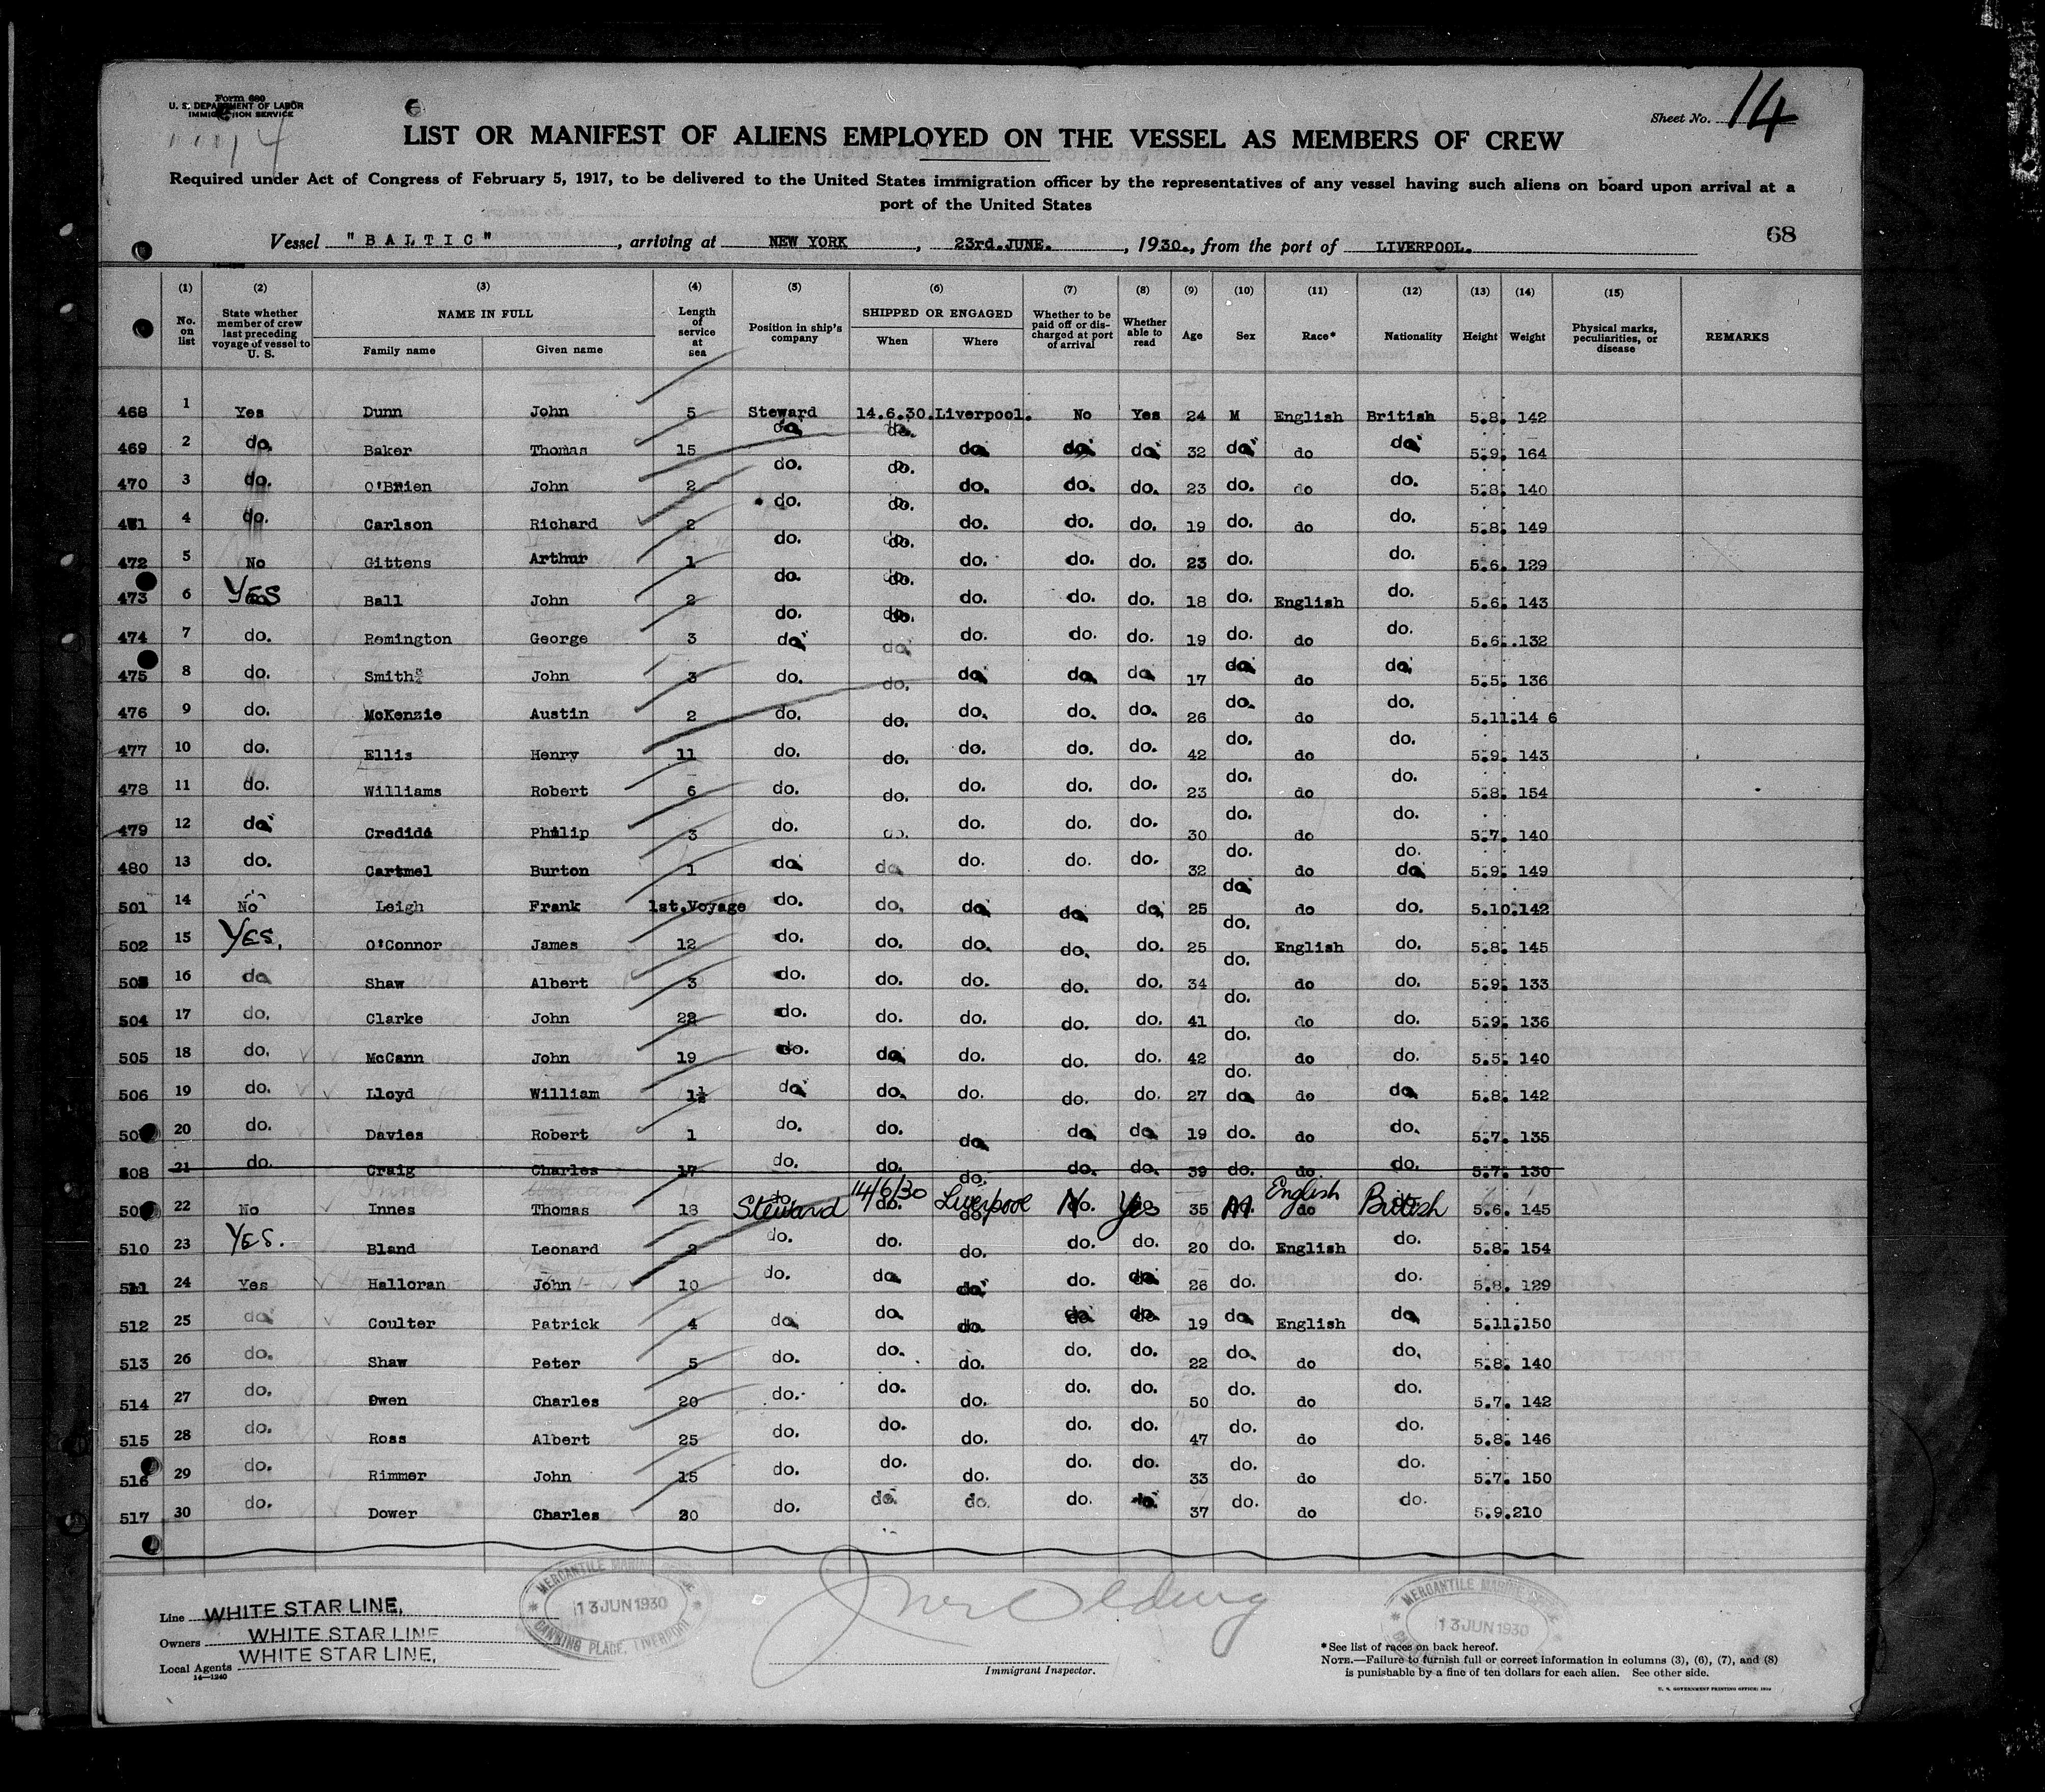 Form 680
U. S. DEPARTMENT OF LABOR
IMMIGRATION SERVICE
Sheet No. 14
LIST OR MANIFEST OF ALIENS EMPLOYED ON THE VESSEL AS MEMBERS OF CREW
Required under Act of Congress of February 5, 1917, to be delivered to the United States immigration officer by the representatives of any vessel having such aliens on board upon arrival at a
port of the United States
68
Vessel "BALTIC", arriving at NEW YORK, 23rd.JUNE., 1930., from the port of LIVERPOOL.
(1) (2) (3) (4) (5) (6) (7) (8) (9) (10) (11) (12) (13) (14) (15)
No. on list State whether member of crew last preceding voyage of vessel to U. S. NAME IN FULL Length of service at sea Position in ship's company SHIPPED OR ENGAGED Whether to be paid off or discharged at port of arrival Whether able to read Age Sex Race* Nationality Height Weight Physical marks, peculiarities, or disease REMARKS
Family name Given name When Where
468 1 Yes Dunn John 5 Steward 14.6.30. Liverpool. No Yes 24 M English British 5.8. 142
469 2 do. Baker Thomas 15 do. do. do. do. do. 32 do. do do. 5.9. 164
470 3 do. O'Brien John 2 do. do. do. do. do. 23 do. do do. 5.8. 140
471 4 do. Carlson Richard 2 do. do. do. do. do. 19 do. do do. 5.8. 149
472 5 No Gittens Arthur 1 do. do. do. do. do. 23 do. do. 5.6. 129
473 6 YES Ball John 2 do. do. do. do. do. 18 do. English do. 5.6. 143
474 7 do. Remington George 3 do. do. do. do. do. 19 do. do do. 5.6. 132
475 8 do. Smith John 3 do. do. do. do. do. 17 do. do do. 5.5. 136
476 9 do. McKenzie Austin 2 do. do. do. do. do. 26 do. do do. 5.11. 14 6
477 10 do. Ellis Henry 11 do. do. do. do. do. 42 do. do do. 5.9. 143
478 11 do. Williams Robert 6 do. do. do. do. do. 23 do. do do. 5.8. 154
479 12 do. Philip 3 do. do. do. do. do. 30 do. do do. 5.7. 140
480 13 do. Cartmel Burton 1 do. do. do. do. do. 32 do. do do. 5.9. 149
501 14 No Leigh Frank 1st.Voyage do. do. do. do. do. 25 do. do do. 5.10. 142
502 15 YES. O'Connor James 12 do. do. do. do. do. 25 do. English do. 5.8. 145
503 16 do Shaw Albert 3 do. do. do. do. do. 34 do. do do. 5.9. 133
504 17 do. Clarke John 22 do. do. do. do. do. 41 do. do do. 5.9. 136
505 18 do. McCann John 19 do. do. do. do. do. 42 do. do do. 5.5. 140
506 19 do. Lloyd William 1½ do. do. do. do. do. 27 do. do do. 5.8. 142
507 20 do. Davies Robert 1 do. do. do. do. do. 19 do. do do. 5.7. 135
508 21 do. Craig Charles 17 do. do. do. do. do. 39 do. do do. 5.7. 130
509 22 No Innes Thomas 18 Steward 14/6/30 Liverpool No Yes 35 M English British 5.6. 145
510 23 YES. Bland Leonard 2 do. do. do. do. do. 20 do. English do. 5.8. 154
511 24 Yes Halloran John 10 do. do. do. do. do. 26 do. do. 5.8. 129
512 25 do. Coulter Patrick 4 do. do. do. do. do. 19 do. English do. 5.11. 150
513 26 do. Shaw Peter 5 do. do. do. do. do. 22 do. do do. 5.8. 140
514 27 do. Owen Charles 20 do. do. do. do. do. 50 do. do do. 5.7. 142
515 28 do. Ross Albert 25 do. do. do. do. do. 47 do. do do. 5.8. 146
516 29 do. Rimmer John 15 do. do. do. do. do. 33 do. do do. 5.7. 150
517 30 do. Dower Charles 20 do. do. do. do. do. 37 do. do do. 5.9. 210
MERCANTILE MARINE
13 JUN 1930
CANNING PLACE, LIVERPOOL
MERCANTILE MARINE
13 JUN 1930
Line WHITE STAR LINE,
Owners WHITE STAR LINE
Local Agents WHITE STAR LINE,
14—1240
Immigrant Inspector.
*See list of races on back hereof.
NOTE.—Failure to furnish full or correct information in columns (3), (6), (7), and (8)
is punishable by a fine of ten dollars for each alien. See other side.